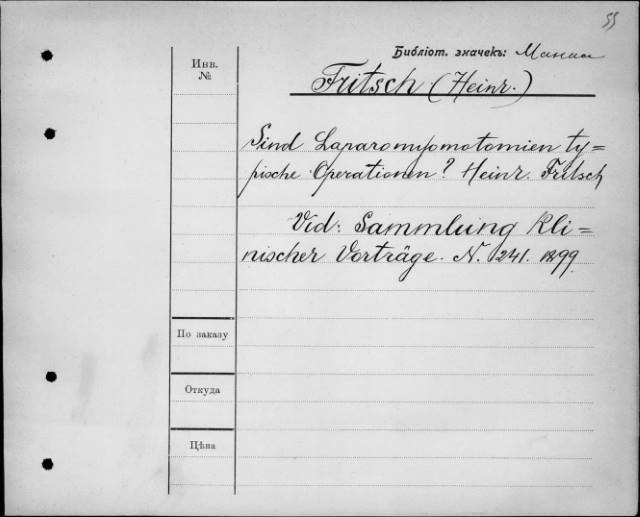 55
Библіот. значекъ:
Инв.
№
Fritsch (Heinr.)
Sind Laparomyomotomien ty=
pische Operationen? Heinr. Fritsch
Vid: Sammlung Kli=
nischer Vorträge. N. 241. 1899.
По заказу
Откуда
Цѣна